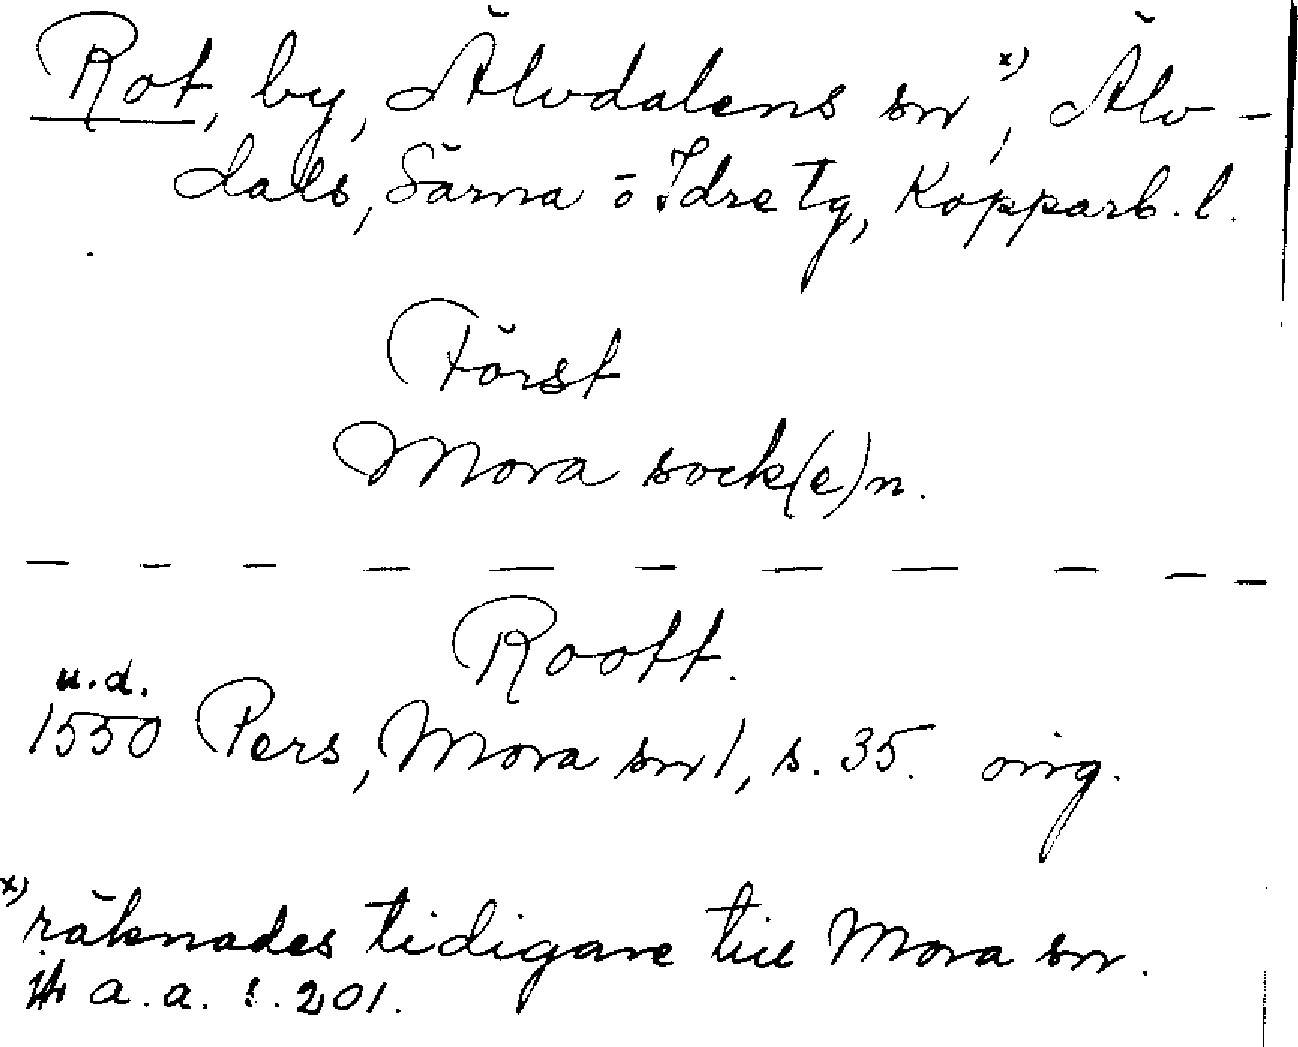 Rot, by, Älvdalens sn x), Älv-
dals, Särna o Idre tg, Kopparb. l.
Först
Mora sock(e)n.
Roott.
u.d.
1550 Pers, Mora sn 1, s. 35. orig.
x) räknades tidigare till Mora sn.
a. a. s. 201.